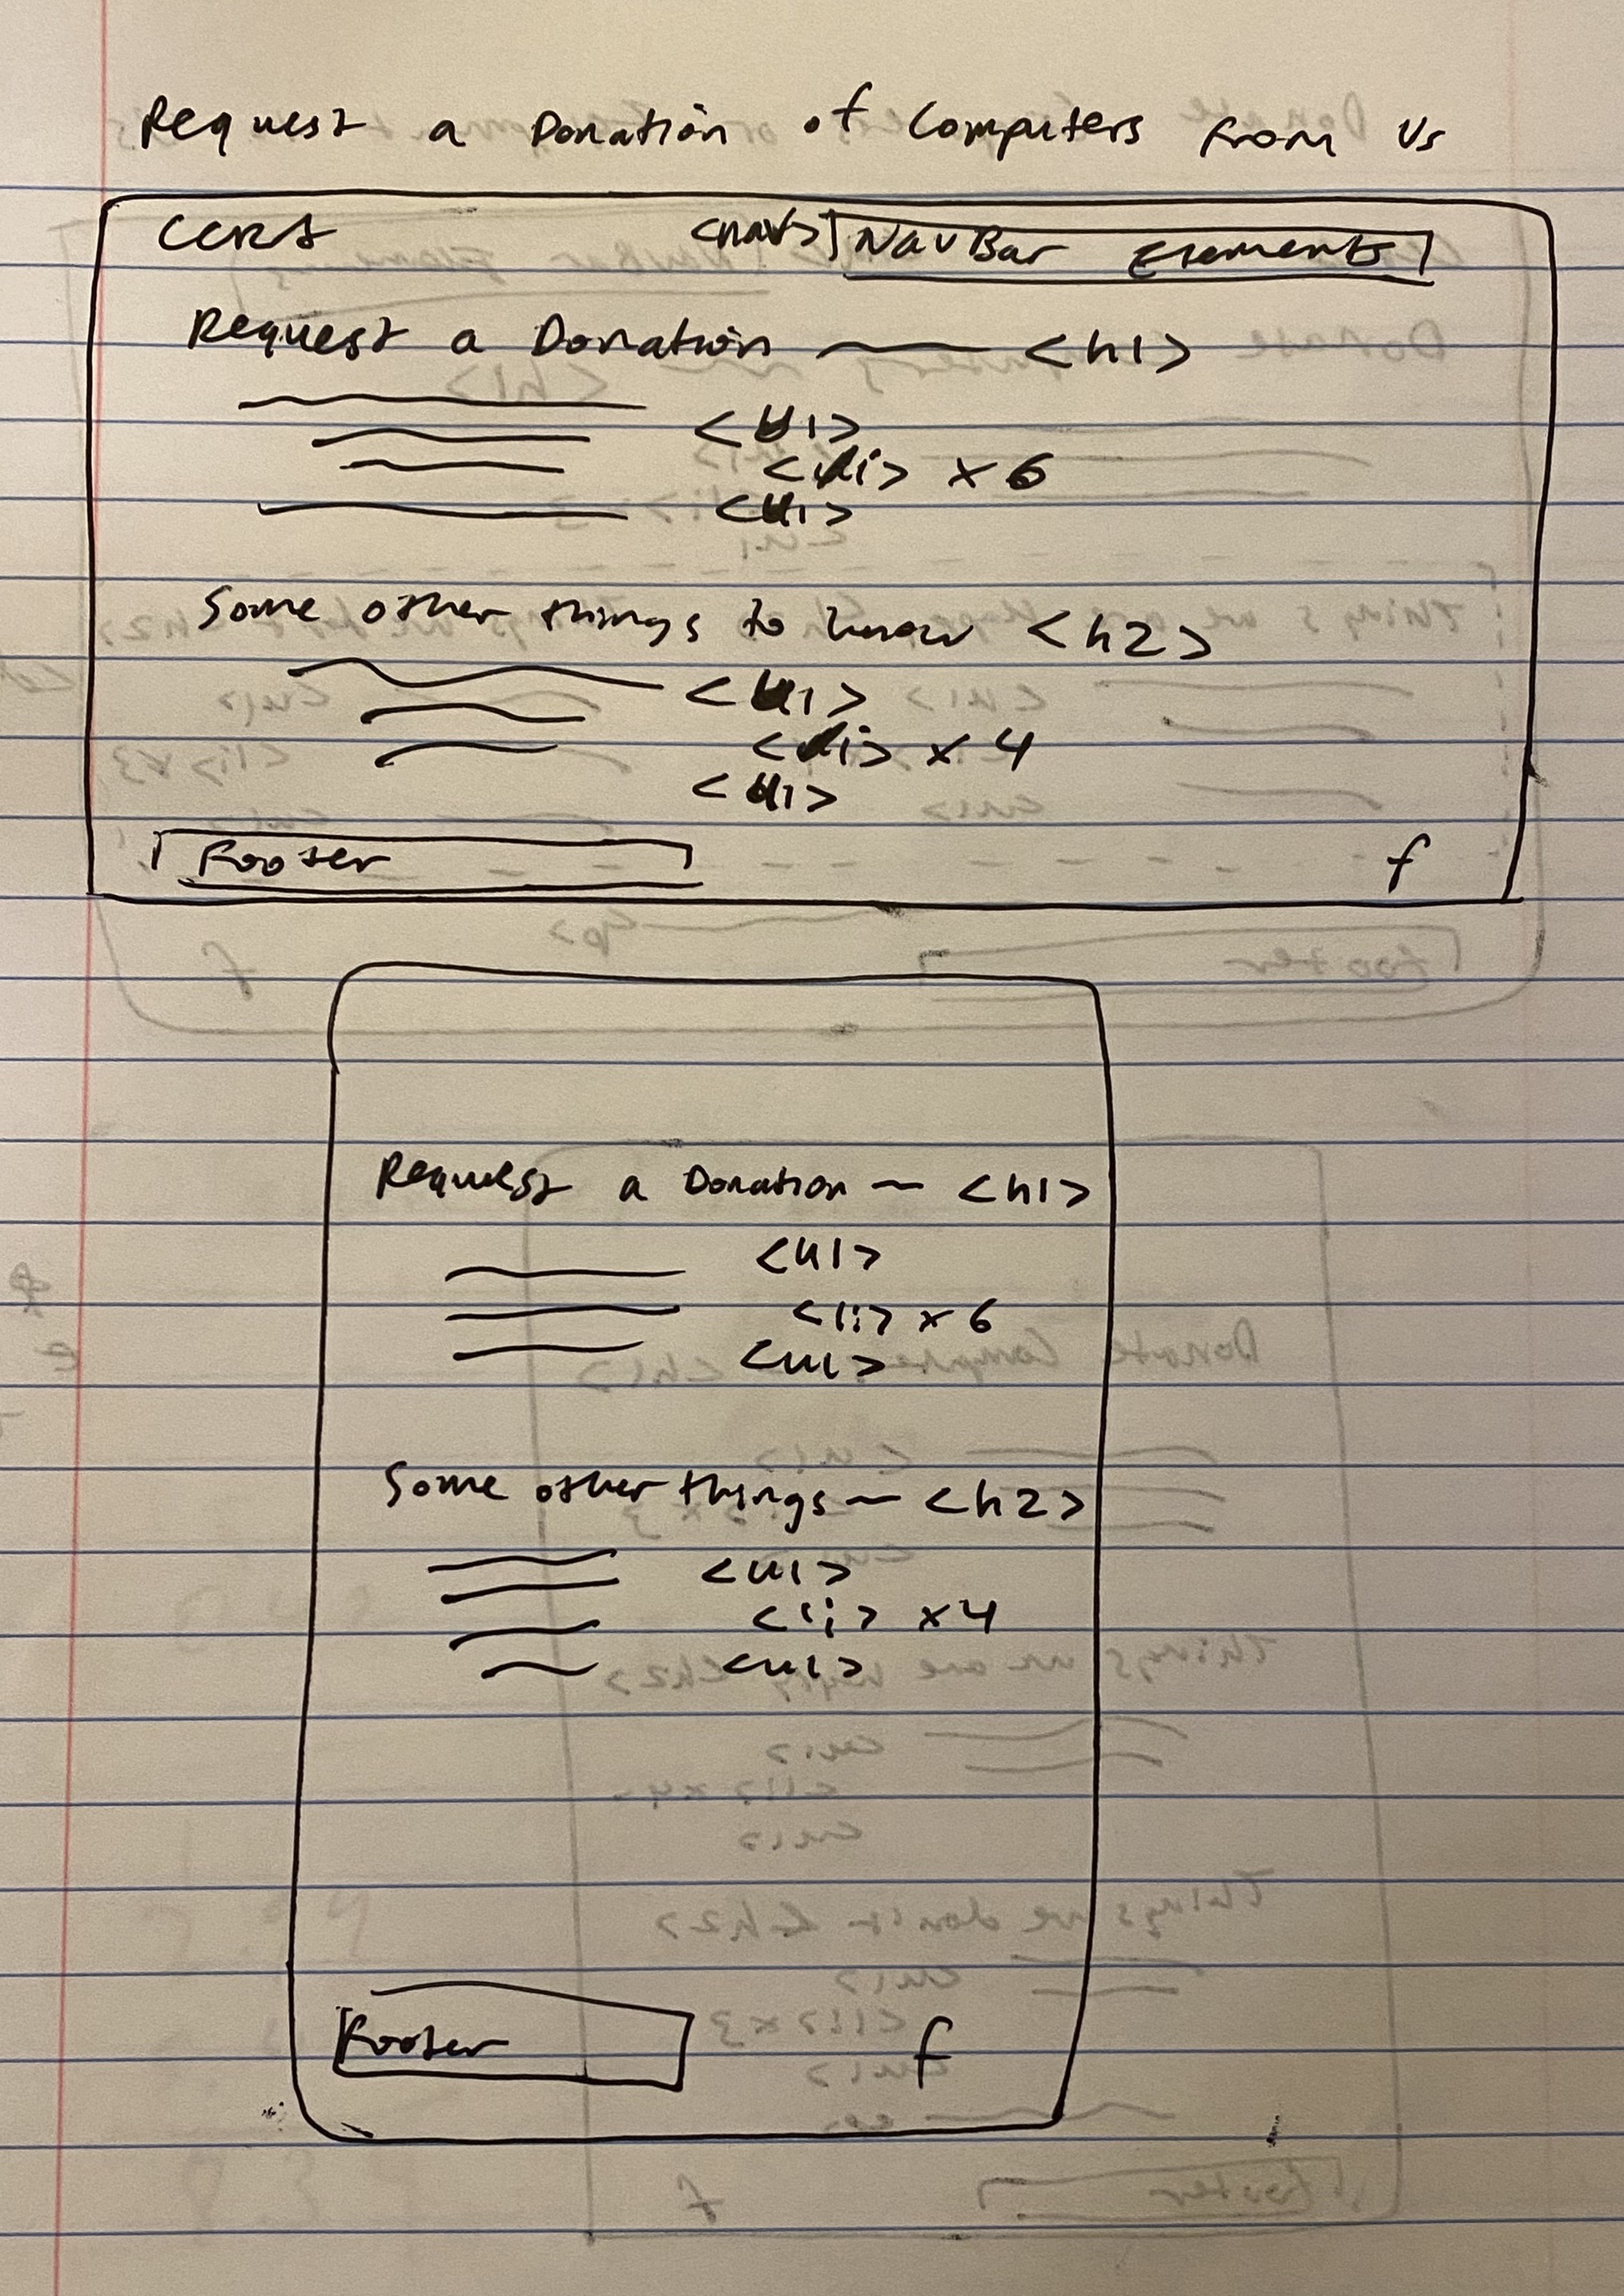 Request a Donation of Computers From Us
CCRS <nav> NavBar Elements
Request a Donation <h1>
<ul>
<li> x 6
<ul>
Some other things to know <h2>
<ul>
<li> x 4
<ul>
Footer f
Request a Donation <h1>
<ul>
<li> x 6
<ul>
Some other things <h2>
<ul>
<li> x4
<ul>
Footer f